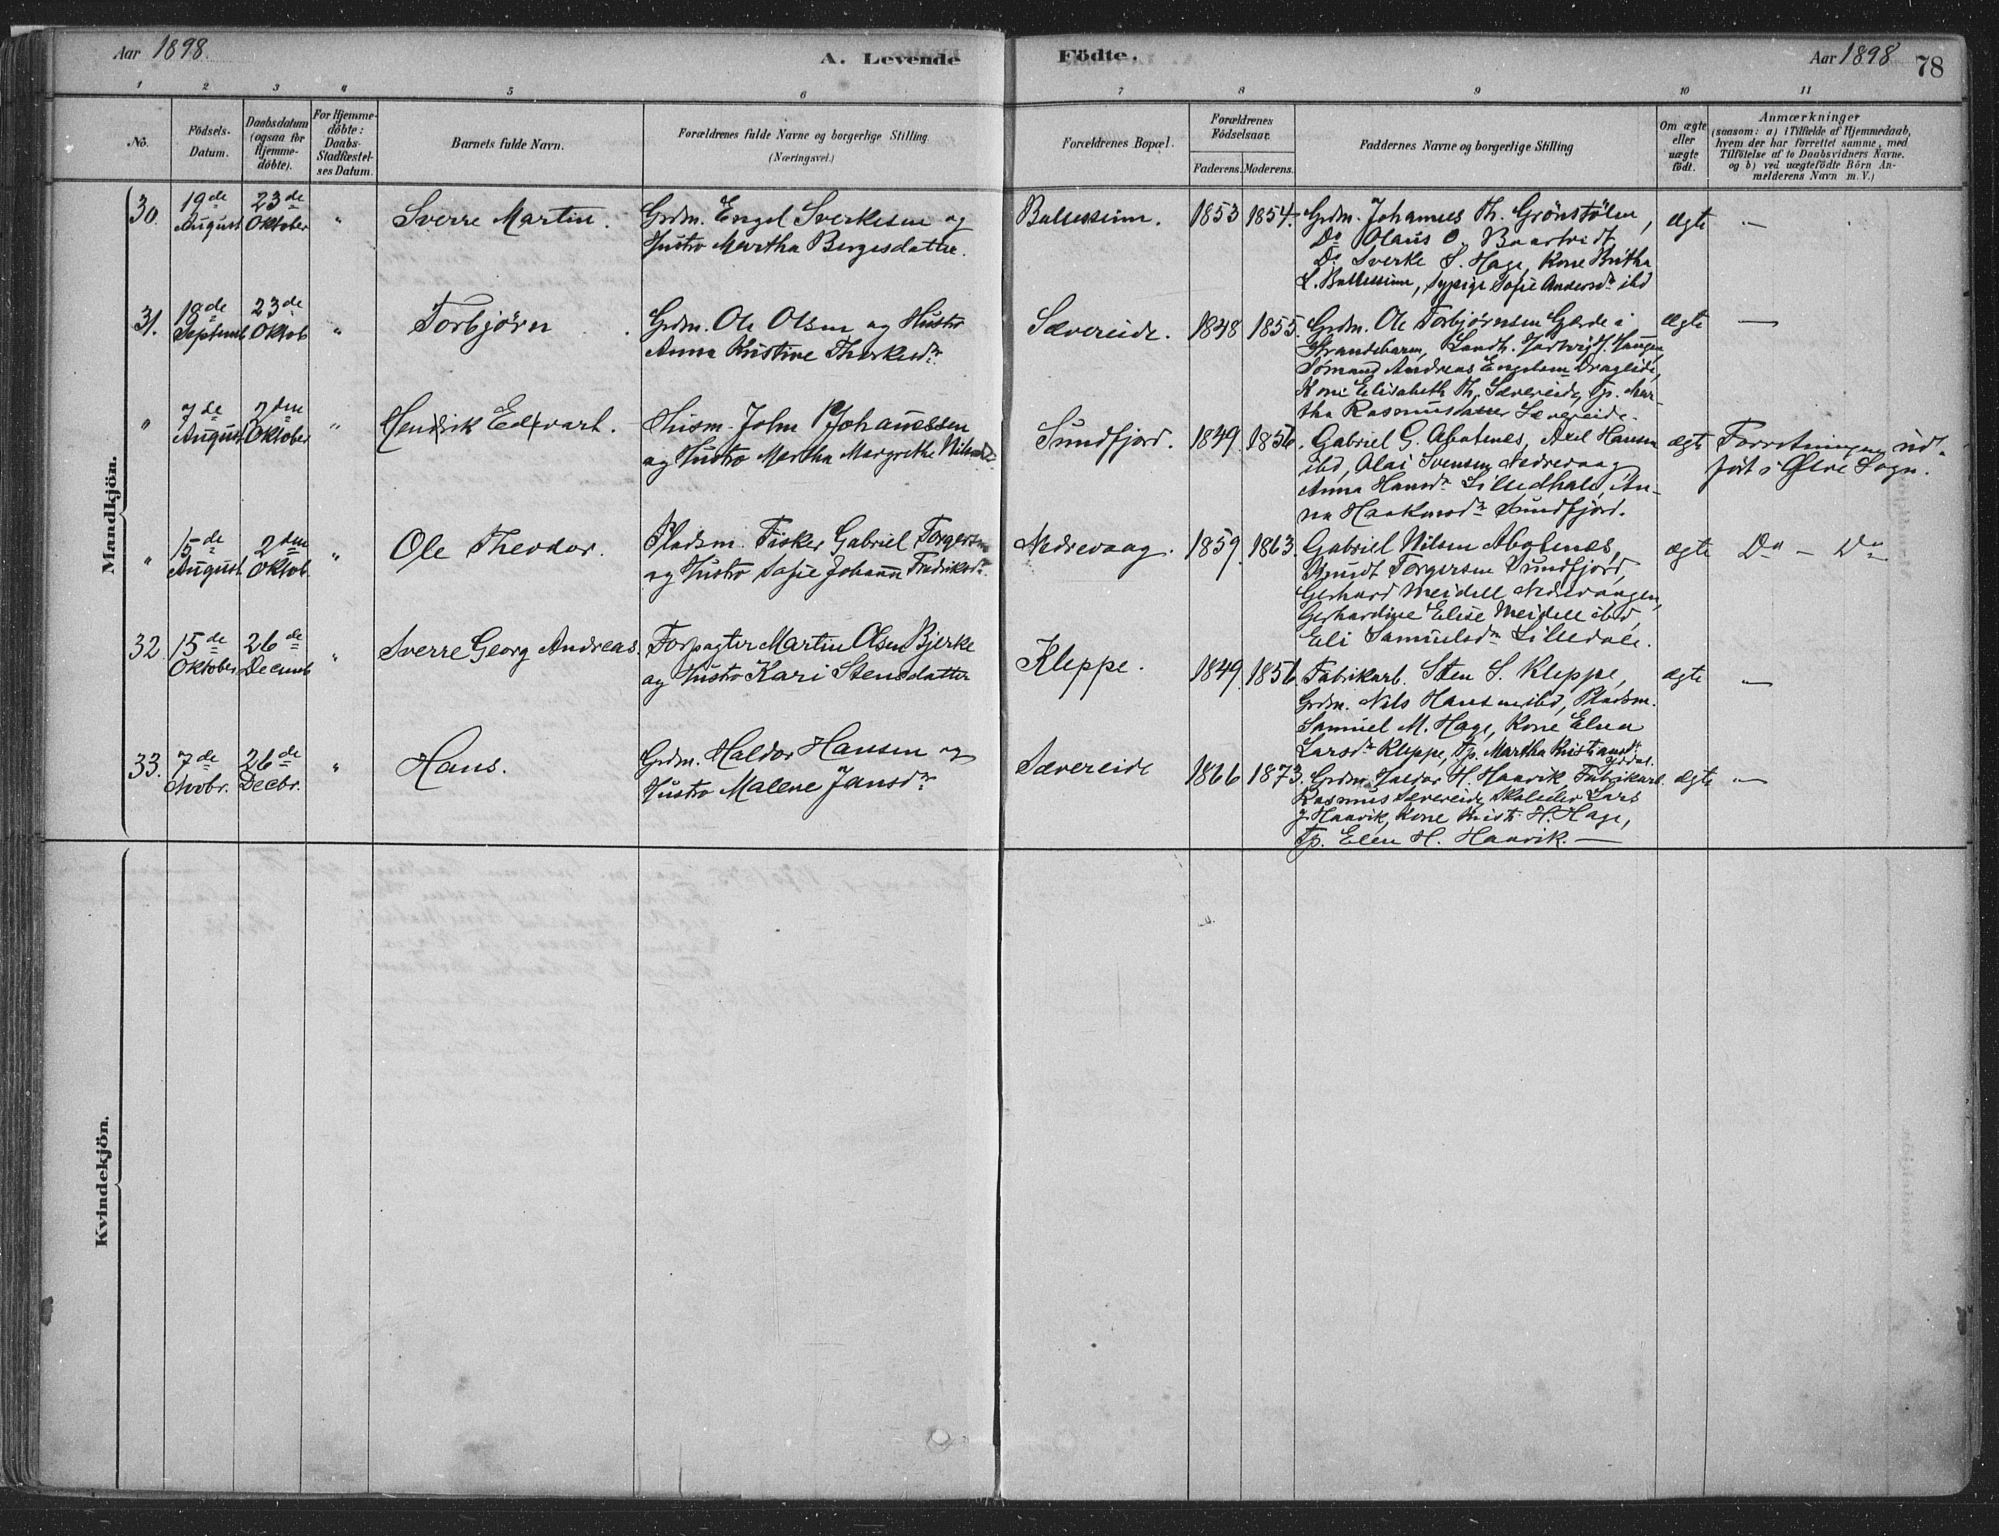 Aar 1898.
A. Levende Födte.
Aar 1898
78
1 2 3 4 5 6 7 8 9 10 11
No.
Födsels-
Datum.
Daabsdatum
(ogsaa for
Hjemme-
døbte).
For Hjemme-
døbte:
Daabs-
Stadfæstel-
ses Datum.
Barnets fulde Navn.
Forældrenes fulde Navne og borgerlige Stilling.
(Næringsvei.)
Forældrenes Bopæl.
Forældrenes
Födselsaar.
Faderens. Moderens.
Faddernes Navne og borgerlige Stilling
Om ægte
eller
uægte
födt.
Anmærkninger
(saasom: a) i Tilfælde af Hjemmedaab,
hvem der har forrettet samme, med
Tilföielse af to Daabsvidners Navne.
og b) ved uægtefödte Börn An-
melderens Navn m. V.)
Mandkjön.
30.
19de
August
23de
Oktober
"
Sverre Martin.
Grdm. Engel Sverkesen og
Hustro Martha Børgesdatter.
Ballessum.
1853 1854.
Grdm. Johannes Th. Grönstölen,
Do Olaus O. Baartvedt
Do Sverke S. Hage, Kone Britha
L. Ballessum, Sypige Sofie Andersdr ibd
ægte
—
31.
18de
Septemb
23de
Oktob.
"
Torbjørn
Grdm. Ole Olsen og Hustro
Anna Kristine Thorkesdr
Sævereide.
1848 1855.
Grdm. Ole Torbjørnsen Gjerde i
Strandebarm, Landh. Haugen,
Sømand Andreas Engelsen Drageide,
Kone Elisabeth Th. Sævereide, Tp. Mar-
tha Rasmusdatter Sævereide.
ægte
—
"
7de
August
2den
Oktober
"
Hendrik Edvart.
Husm. John Johanessen
og Hustro Martha Margrethe Nilsd.
Sundfjord.
1849. 1856.
Gabriel G. Abotnes, Axel Hansen
ibd, Olai Svensen Nedrevaag
Anna Hansdr Lilledhale, An-
na Haakonsdr Sundfjord.
ægte
Forretningen ud-
ført i Ølve Sogn.
"
15de
August.
2den
Oktob.
"
Ole Theodor.
Pladsm. Fisker Gabriel Torgersen
og Hustro Sofie Johann Fredriksdr.
Nedrevaag.
1859. 1863.
Gabriel Nilsen Abotnes,
Knudt Torgersen Sundfjord,
Gerhard Meidell Nedrevaagen,
Gerhardine Elise Meidell ibd,
Eli Samuelsdr Lilledale.
ægte
Do — Do
32.
15de
Oktober
26de
Decemb
"
Sverre Georg Andreas.
Forpagter Martin Olsen Bjerke
og Hustro Kari Stensdatter
Kleppe.
1849. 1856.
Fabrikarb. Sten S. Kleppe,
Grdm. Nils Hansen ibd, Pladsm.
Samuel M. Hage, Kone Elna
Larsdr Kleppe, Tp. Martha Kristiansdr
ægte
—
33.
7de
Novbr.
26de
Decbr.
"
Hans.
Grdm. Haldor Hansen og
Hustro Malene Jansdr
Sævereide
1866 1873.
Grdm. Haldor H. Haavik, Fabrikarb.
Rasmus Sævereide, Skoleelev Lars
J. Haavik, Kone Krist. H. Hage,
Tp. Elen H. Haavik. —
ægte
—
Kvindekjön.